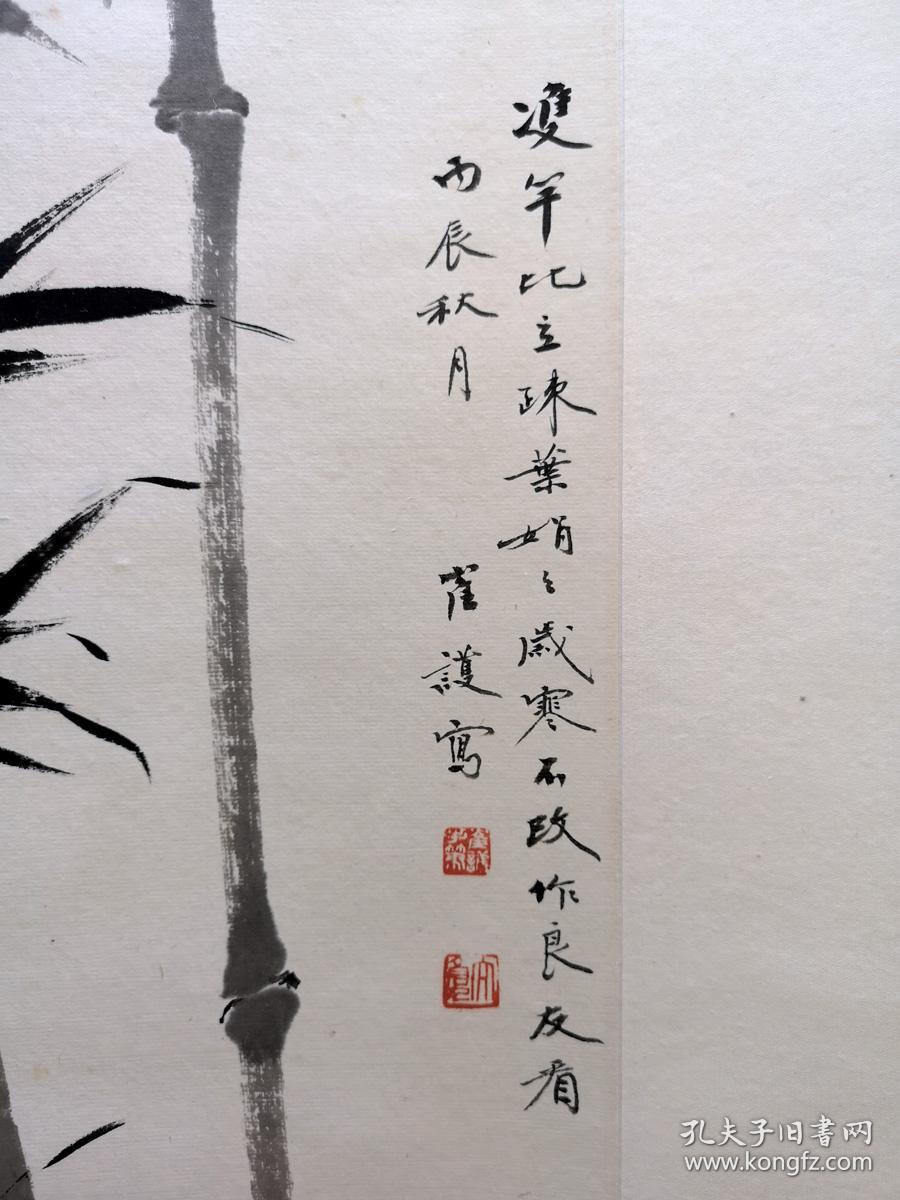 雙竿比立疎葉娟々歲寒不改作良友看
丙辰秋月
崔護寫
孔夫子旧書网
www.kongfz.com